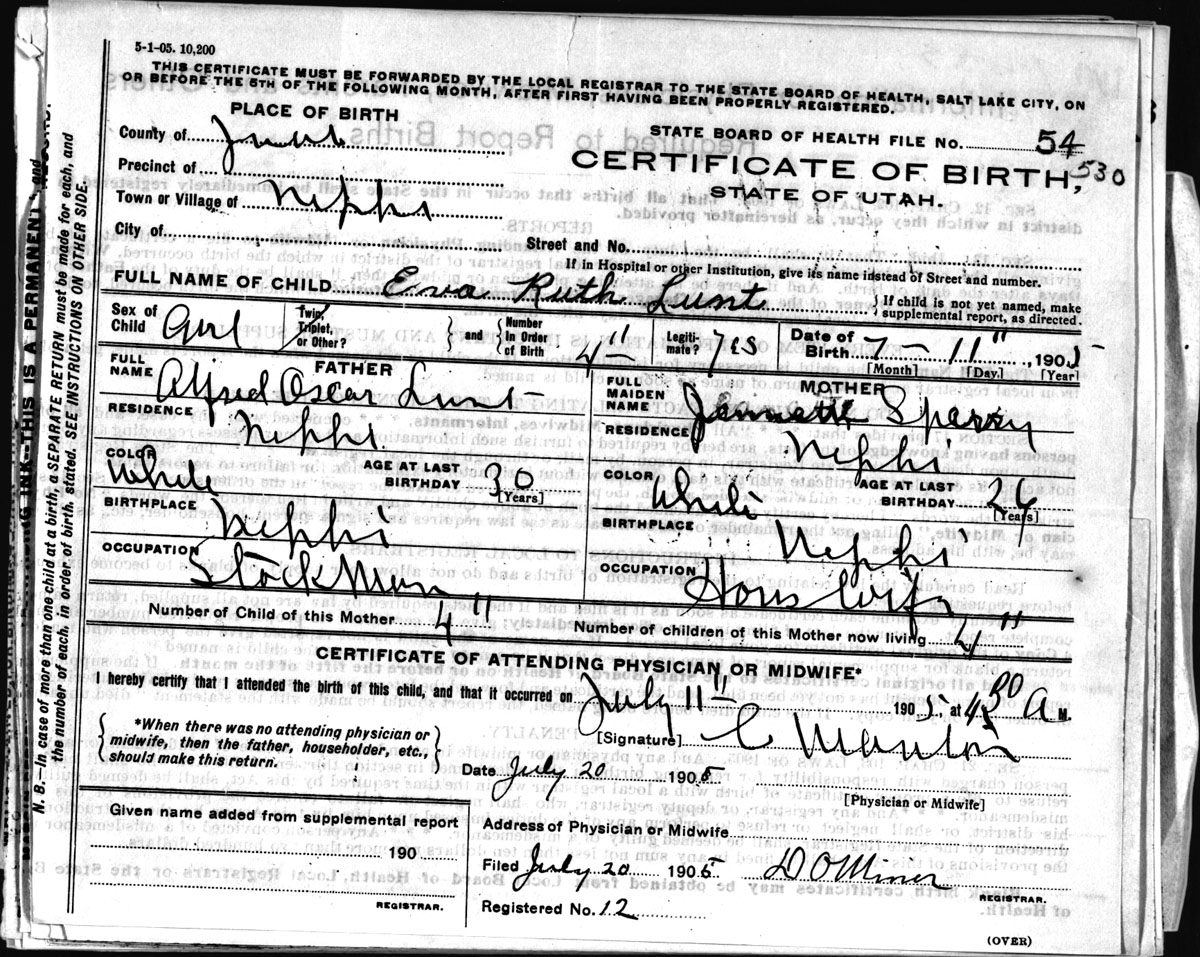 5-1-05. 10,200
THIS CERTIFICATE MUST BE FORWARDED BY THE LOCAL REGISTRAR TO THE STATE BOARD OF HEALTH, SALT LAKE CITY, ON
OR BEFORE THE 5TH OF THE FOLLOWING MONTH, AFTER FIRST HAVING BEEN PROPERLY REGISTERED.
PLACE OF BIRTH
County of Juab
Precinct of
Town or Village of Nephi
City of
STATE BOARD OF HEALTH FILE No. 54
530
CERTIFICATE OF BIRTH,
STATE OF UTAH.
Street and No.
If in Hospital or other Institution, give its name instead of Street and number.
FULL NAME OF CHILD Eva Ruth Lunt } If child is not yet named, make supplemental report, as directed.
Sex of Child Girl Twin, Triplet, or Other? } and { Number In Order of Birth 4" Legiti-mate? yes Date of Birth 7 - 11" , 1905
[Month] [Day.] [Year]
FATHER
FULL NAME Alfred Oscar Lunt
RESIDENCE Nephi
COLOR White AGE AT LAST BIRTHDAY 30 [Years]
BIRTHPLACE Nephi
OCCUPATION Stock Man
MOTHER
FULL MAIDEN NAME Jennette Sperry
RESIDENCE Nephi
COLOR White AGE AT LAST BIRTHDAY 26 [Years]
BIRTHPLACE Nephi
OCCUPATION Hous Wife
Number of Child of this Mother 4" Number of children of this Mother now living 4"
CERTIFICATE OF ATTENDING PHYSICIAN OR MIDWIFE*
I hereby certify that I attended the birth of this child, and that it occurred on July 11" 1905 at 4 30 A M.
{ *When there was no attending physician or midwife, then the father, householder, etc., should make this return. }
[Signature] C
Date July 20 1905
[Physician or Midwife]
Given name added from supplemental report
190
REGISTRAR.
Address of Physician or Midwife
Filed July 20 1905 D O Miner
REGISTRAR.
Registered No. 12
(OVER)
N. B.—In case of more than one child at a birth, a SEPARATE RETURN must be made for each, and
the number of each, in order of birth, stated. SEE INSTRUCTIONS ON OTHER SIDE.
INK—THIS IS A PERMANENT